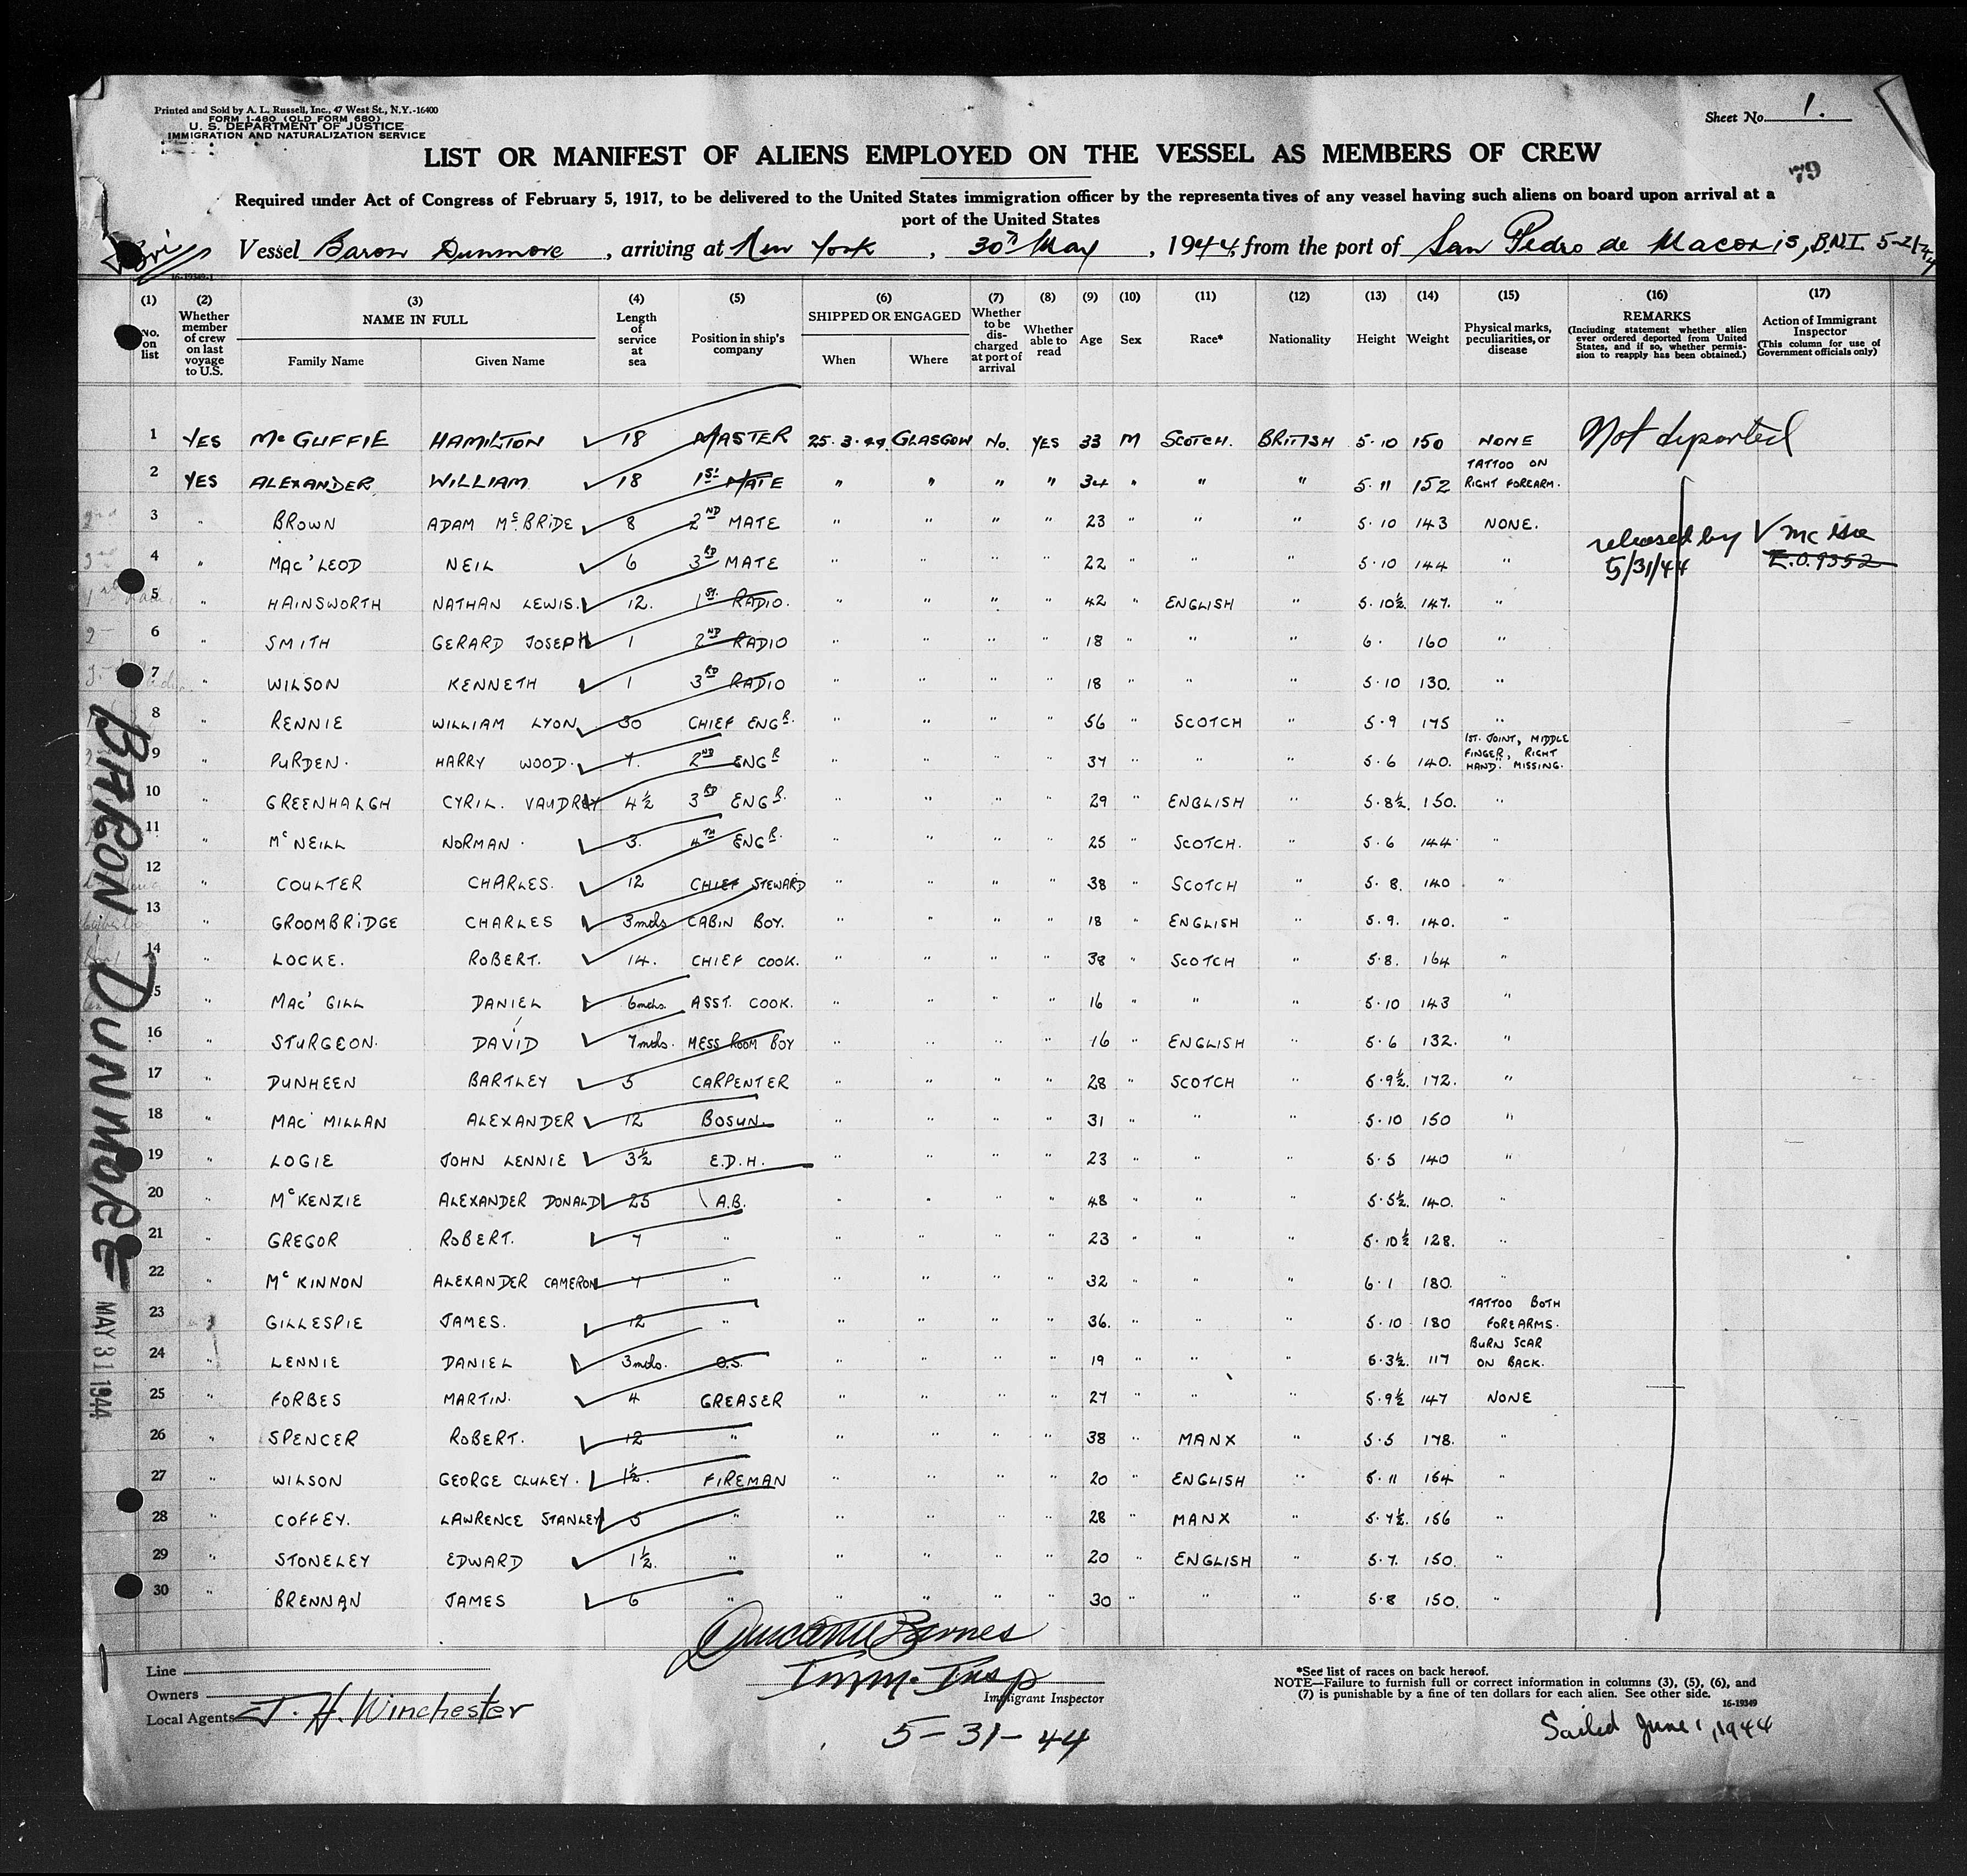 Printed and Sold by A. L. Russell, Inc., 47 West St., N.Y.-16400
FORM I-480 (OLD FORM 680)
U. S. DEPARTMENT OF JUSTICE
IMMIGRATION AND NATURALIZATION SERVICE
Sheet No. 1.
LIST OR MANIFEST OF ALIENS EMPLOYED ON THE VESSEL AS MEMBERS OF CREW
79
Required under Act of Congress of February 5, 1917, to be delivered to the United States immigration officer by the representatives of any vessel having such aliens on board upon arrival at a
port of the United States
Bri Vessel Baron Dunmore, arriving at New York, 30th May, 1944, from the port of San Pedro de Macoris,
16-19349-1
(1) (2) (3) (4) (5) (6) (7) (8) (9) (10) (11) (12) (13) (14) (15) (16) (17)
No. on list
Whether member of crew on last voyage to U.S.
NAME IN FULL
Family Name
Given Name
Length of service at sea
Position in ship's company
SHIPPED OR ENGAGED
When
Where
Whether to be discharged at port of arrival
Whether able to read
Age
Sex
Race*
Nationality
Height
Weight
Physical marks, peculiarities, or disease
REMARKS
(Including statement whether alien ever ordered deported from United States, and if so, whether permission to reapply has been obtained.)
Action of Immigrant Inspector
(This column for use of Government officials only)
1 YES McGUFFIE HAMILTON 18 MASTER 25.3.44 GLASGOW No. YES 33 M SCOTCH. BRITISH 5.10 150 NONE Not deported
2 YES ALEXANDER WILLIAM 18 1ST MATE " " " " 34 " " " 5.11 152 TATTOO ON RIGHT FOREARM.
3 " BROWN ADAM McBRIDE 8 2ND MATE " " " " 23 " " " 5.10 143 NONE.
4 " MAC'LEOD NEIL 6 3RD MATE " " " " 22 " " " 5.10 144 "
released by
5/31/44 E.O.9352
5 " HAINSWORTH NATHAN LEWIS. 12. 1ST. RADIO. " " " " 42 " ENGLISH " 5.10½ 147. "
6 " SMITH GERARD JOSEPH 1 2ND RADIO " " " " 18 " " " 6. 160 "
7 " WILSON KENNETH 1 3RD RADIO " " " " 18 " " " 5.10 130. "
8 " RENNIE WILLIAM LYON 30 CHIEF ENGR. " " " " 56 " SCOTCH " 5.9 175 "
9 " PURDEN. HARRY WOOD. 7. 2ND ENGR " " " " 37 " " " 5.6 140. 1ST. JOINT, MIDDLE FINGER, RIGHT HAND. MISSING.
10 " GREENHALGH CYRIL. VAUDREY 4½ 3RD ENGR. " " " " 29 " ENGLISH " 5.8½. 150. "
11 " McNEILL NORMAN. 3. 4TH ENGR. " " " " 25 " SCOTCH. " 5.6 144 "
12 " COULTER CHARLES. 12 CHIEF STEWARD " " " " 38 " SCOTCH " 5.8. 140 "
13 " GROOMBRIDGE CHARLES 3mths CABIN BOY. " " " " 18 " ENGLISH " 5.9. 140. "
14 " LOCKE. ROBERT. 14. CHIEF COOK. " " " " 38 " SCOTCH " 5.8. 164 "
15 " MAC'GILL DANIEL 6mths. ASST. COOK. " " " " 16 " " " 5.10 143 "
16 " STURGEON. DAVID 7mths. MESS ROOM BOY " " " " 16 " ENGLISH " 5.6 132. "
17 " DUNHEEN BARTLEY 5 CARPENTER " " " " 28 " SCOTCH " 5.9½. 172. "
18 " MAC'MILLAN ALEXANDER 12 BOSUN. " " " " 31 " " " 5.10 150 "
19 " LOGIE JOHN LENNIE 3½ E.D.H. " " " " 23 " " " 5.5 140 "
20 " McKENZIE ALEXANDER DONALD 25 A.B. " " " " 48 " " " 5.5½. 140. "
21 " GREGOR ROBERT. 7 " " " " " 23 " " " 5.10½ 128. "
22 " McKINNON ALEXANDER CAMERON 7 " " " " " 32 " " " 6.1 180. "
23 " GILLESPIE JAMES. 12 " " " " " 36. " " " 5.10 180 TATTOO BOTH FOREARMS.
24 " LENNIE DANIEL 3mths. O.S. " " " " 19 " " " 5.3½. 117 BURN SCAR ON BACK.
25 " FORBES MARTIN. 4 GREASER " " " " 27 " " " 5.9½ 147 NONE
26 " SPENCER ROBERT. 12 " " " " " 38 " MANX " 5.5 178. "
27 " WILSON GEORGE CLULEY. 1½. FIREMAN " " " " 20 " ENGLISH " 5.11 164 "
28 " COFFEY. LAWRENCE STANLEY 5 " " " " " 28 " MANX " 5.7½. 156 "
29 " STONELEY EDWARD 1½. " " " " " 20 " ENGLISH " 5.7. 150. "
30 " BRENNAN JAMES 6 " " " " " 30 " " " 5.8 150. "
BARON DUNMORE
MAY 31 1944
Line
Owners
Local Agents J. H. Winchester
Barnes
Imm. Insp
Immigrant Inspector
5-31-44
*See list of races on back hereof.
NOTE—Failure to furnish full or correct information in columns (3), (5), (6), and
(7) is punishable by a fine of ten dollars for each alien. See other side.
16-19349
Sailed June 1, 1944